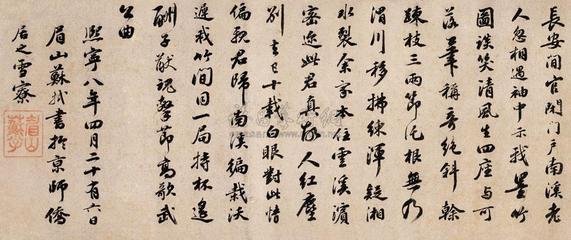 長安閒官閉門戶南溪老
人忽相遇袖中示我墨竹
圖談笑清風生四座與可
落筆稱奇絕斜幹
疎枝三兩節託根無乃
渭川移拂練渾疑湘
水裂余家本住雲溪濱
密邇此君真故人紅塵
別去已十載白眼對此情
偏親君歸南溪徧栽沃
遲我竹間同一局持杯遙
酬子猷魂擊節高歌武
公曲
熙寧八年四月二十有六日
眉山蘇軾書於京師僑
居之雪寮
眉山蘇軾